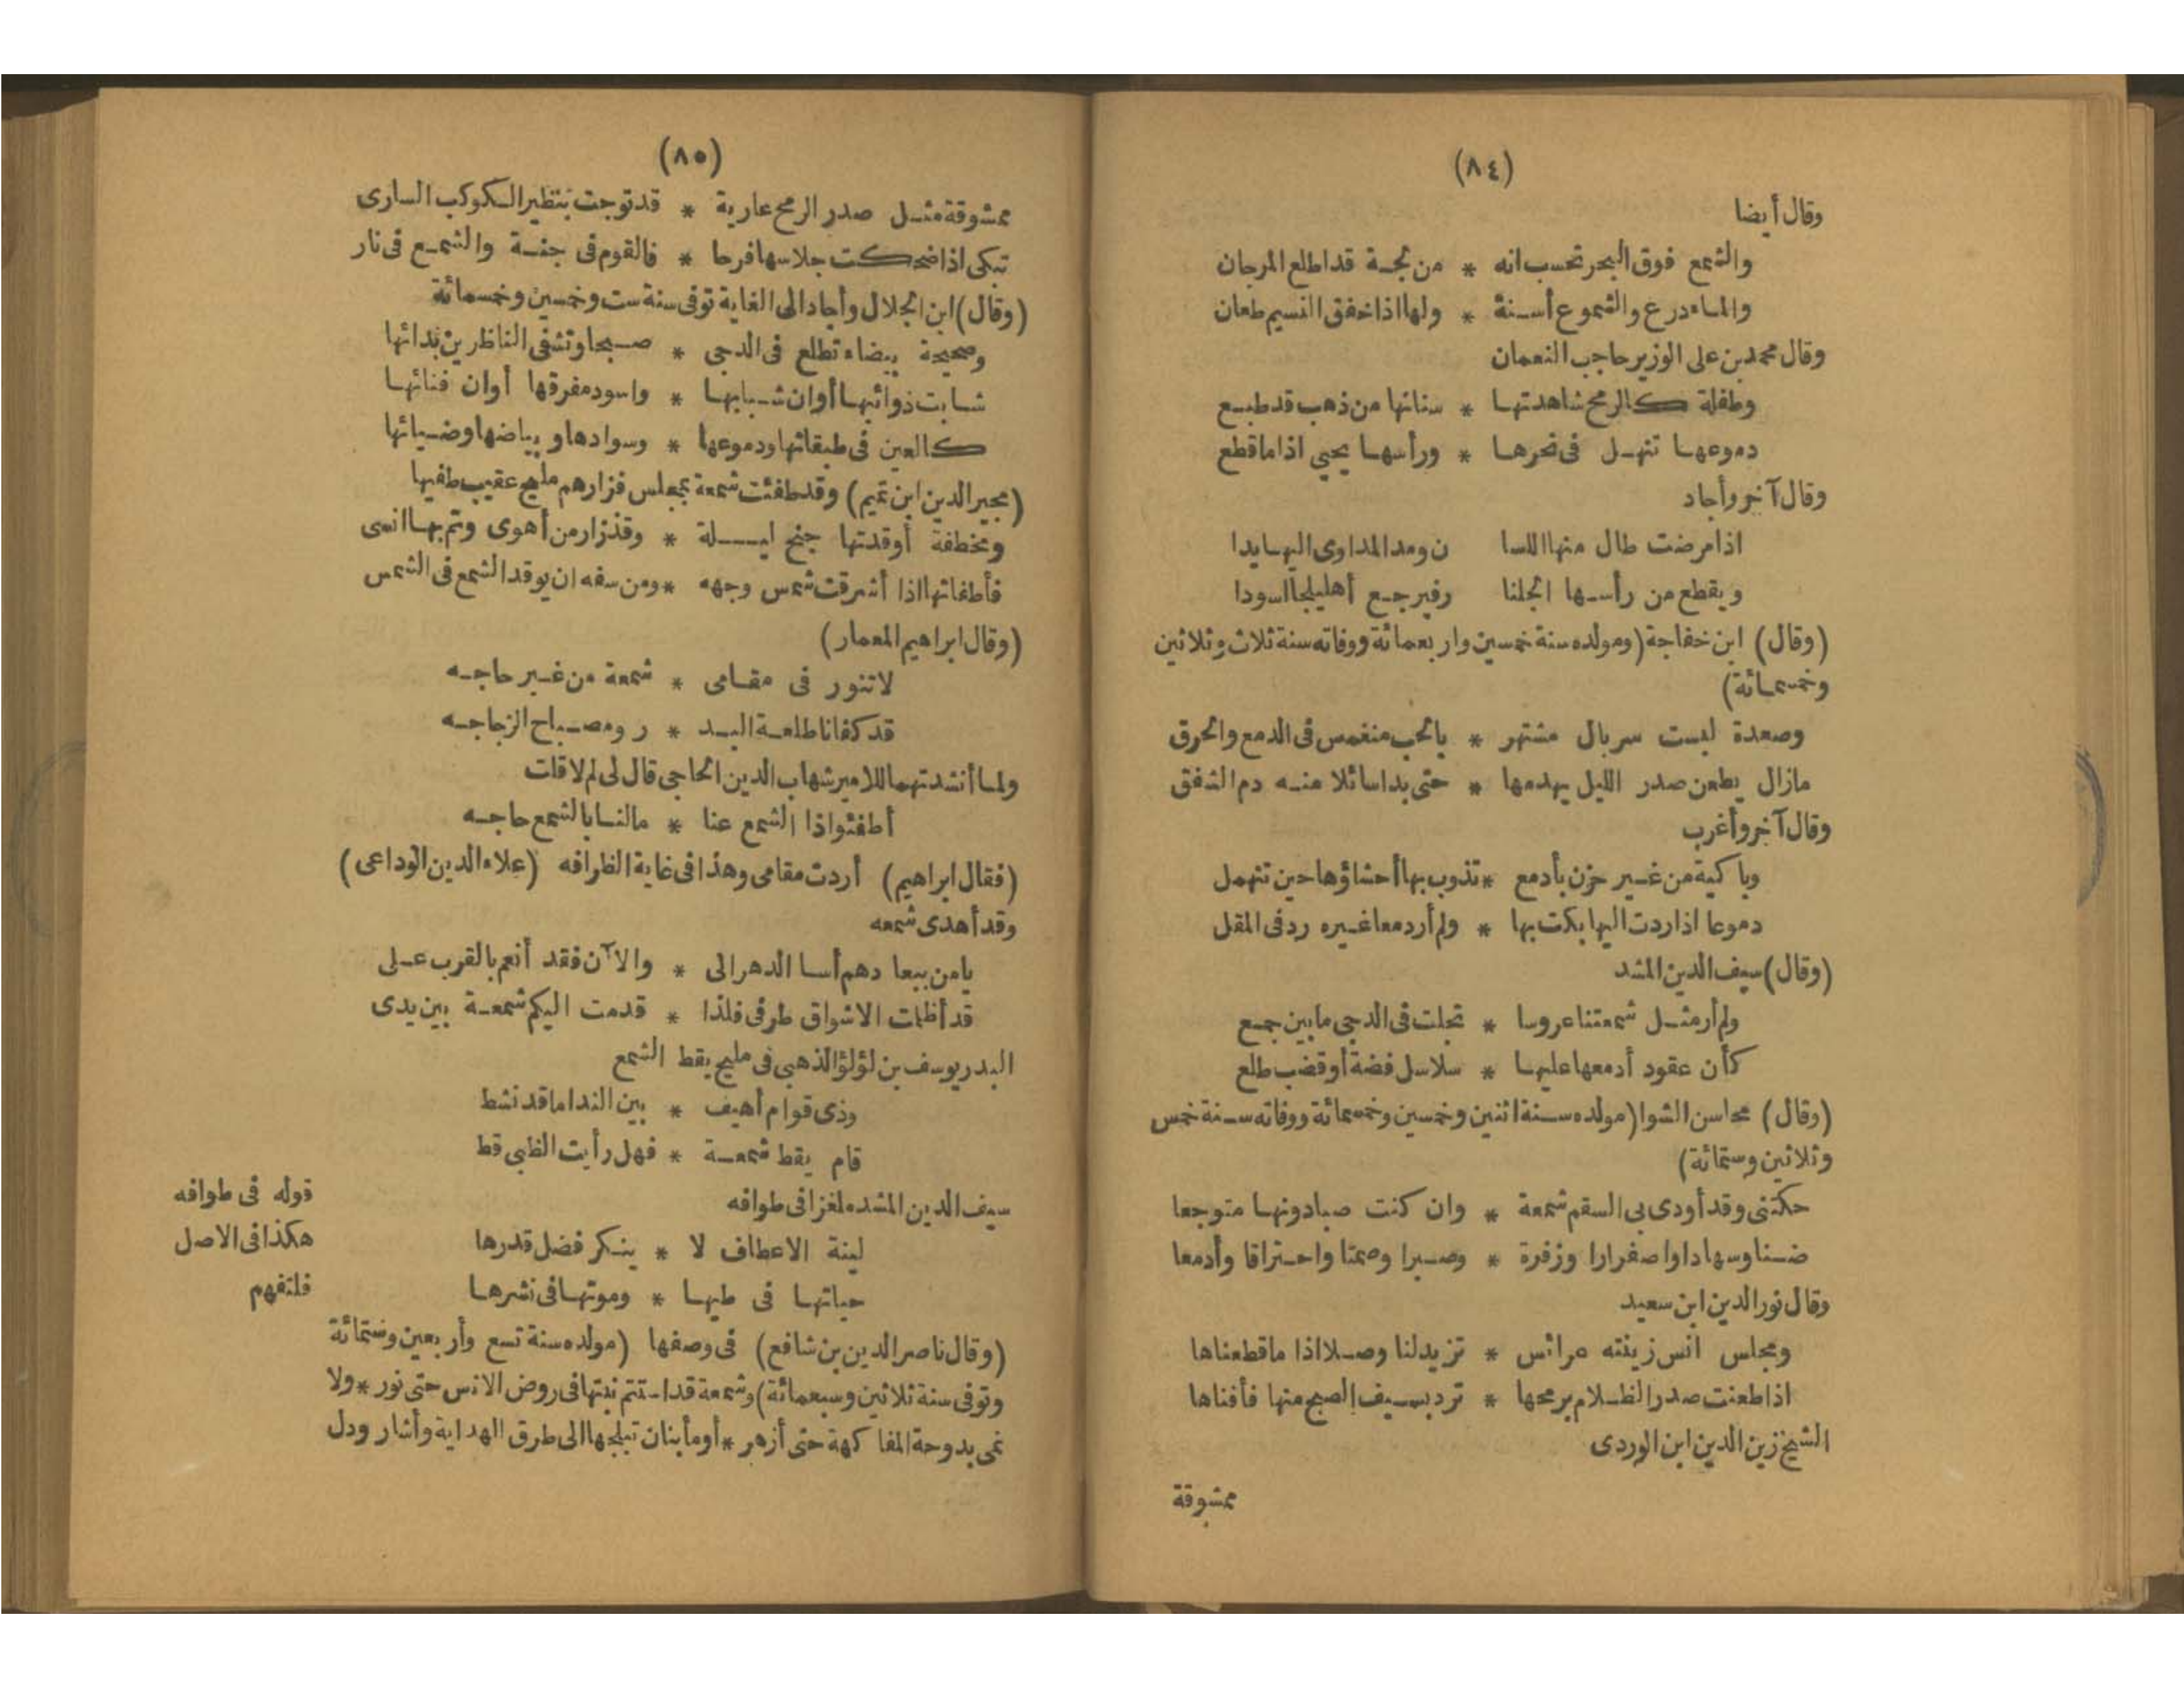 (٨٤)
وقال أيضا
والشمع فوق البحر تحسب انه * من لجة قد اطلع المرجان
والماء درع والشموع أسنة * ولها اذا خفق النسيم طعان
وقال محمد بن على الوزير حاجب النعمان
وطفلة كالرمح شاهدتها * سنانها من ذهب قد طبع
دموعها تنهل فى نحرها * ورأسها يحيى اذا ما قطع
وقال آخر وأجاد
اذا مرضت طال منها اللسا ن ومد المداوى اليها يدا
ويقطع من رأسها الجلنا رفيرجع أهليلجا اسودا
(وقال) ابن خفاجة (ومولده سنة خمسين واربعمائة ووفاته سنة ثلاث وثلاثين
وخمسمائة)
وصعدة لبست سربال مشتهر * بالحب منغمس فى الدمع والحرق
مازال يطعن صدر الليل يهدمها * حتى بدا سائلا منه دم الشفق
وقال آخر وأغرب
وباكية من غير حزن بأدمع * تذوب بها أحشاؤها حين تنهمل
دموعا اذا ردت اليها بكت بها * ولم أر دمعا غيره رد فى المقل
(وقال) سيف الدين المشد
ولم أر مثل شمعتنا عروسا * تجلت فى الدجى ما بين جمع
كأن عقود أدمعها عليها * سلاسل فضة أو قضب طلع
(وقال) محاسن الشوا (مولده سنة اثنين وخمسين وخمسمائة ووفاته سنة خمس
وثلاثين وستمائة)
حكتنى وقد أودى بى السقم شمعة * وان كنت صبا دونها متوجعا
ضنا وسهادا واصفرارا وزفرة * وصبرا وصمتا واحتراقا وأدمعا
وقال نور الدين ابن سعيد
ومجلس انس زينته عرائس * تزيد لنا وصلا اذا ما قطعناها
اذا طعنت صدر الظلام برمحها * ترد بسيف الصبح منها فأفناها
الشيخ زين الدين ابن الوردى
ممشوقة
(٨٥)
ممشوقة مثل صدر الرمح عارية * قد توجت بنظير الكوكب السارى
تبكى اذا ضحكت جلاسها فرحا * فالقوم فى جنة والشمع فى نار
(وقال) ابن الجلال وأجاد الى الغاية توفى سنة ست وخمسين وخمسمائة
وصحيحة بيضاء تطلع فى الدجى * صبحا وتشفى الناظرين بدائها
شابت ذوائبها أوان شبابها * واسود مفرقها أوان فنائها
كالعين فى طبقاتها ودموعها * وسوادها وبياضها وضيائها
(مجير الدين ابن تميم) وقد طفئت شمعة بمجلس فزارهم مليح عقيب طفيها
ومخطفة أوقدتها جنح ليلة * وقد زار من أهوى وتم بها انسى
فأطفاتها اذا أشرقت شمس وجهه * ومن سفه ان يوقد الشمع فى الشمس
(وقال ابراهيم المعمار)
لا تنور فى مقامى * شمعة من غير حاجه
قد كفانا طلعة البد * ر ومصباح الزجاجه
ولما أنشدتهما للامير شهاب الدين الحاجى قال لى لم لا قلت
أطفئوا ذا الشمع عنا * مالنا بالشمع حاجه
(فقال ابراهيم) أردت مقامى وهذا فى غاية الظرافه (علاء الدين الوداعى)
وقد أهدى شمعه
يامن ببعادهم أسا الدهر الى * والآن فقد أنعم بالقرب على
قد أظمت الاشواق طرفى فلذا * قدمت اليكم شمعة بين يدى
البدر يوسف بن لؤلؤ الذهبى فى مليح يقط الشمع
وذى قوام أهيف * بين النداما قد نشط
قام يقط شمعة * فهل رأيت الظبى قط
سيف الدين المشد ملغزا فى طوافه
لينة الاعطاف لا * ينكر فضل قدرها
حياتها فى طيها * وموتها فى نشرها
(وقال ناصر الدين بن شافع) فى وصفها (مولده سنة تسع وأربعين وستمائة
وتوفى سنة ثلاثين وسبعمائة) وشمعة قد استتم نبتها فى روض الانس حتى نور * ولا
نمى بدوحة المفاكهة حتى أزهر * أومأ بنان تبلجها الى طرق الهداية وأشار ودل
قوله فى طوافه
هكذا فى الاصل
فلتفهم